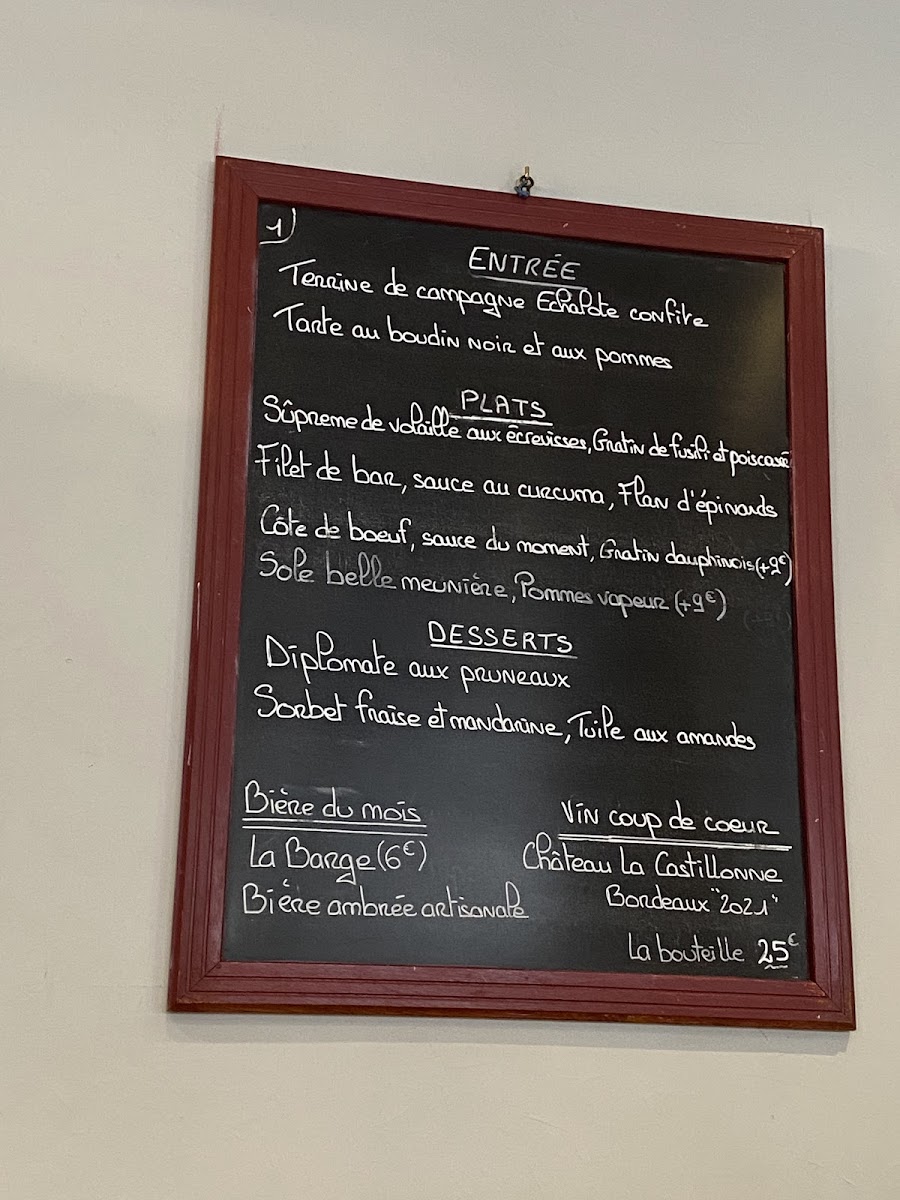 1)
ENTRÉE
Terrine de campagne Echalote confite
Tarte au boudin noir et aux pommes
PLATS
Sûpreme de volaille aux écrevisses, Gratin de fusili et poiscassé
Filet de bar, sauce au curcuma, Flan d'épinards
Côte de boeuf, sauce du moment, Gratin dauphinois (+9€)
Sole belle meunière, Pommes vapeur (+9€)
DESSERTS
Diplomate aux pruneaux
Sorbet fraise et mandarine, Tuile aux amandes
Bière du mois
La Barge (6€)
Bière ambrée artisanale
Vin coup de coeur
Château La Castillonne
Bordeaux "2021"
La bouteille 25€